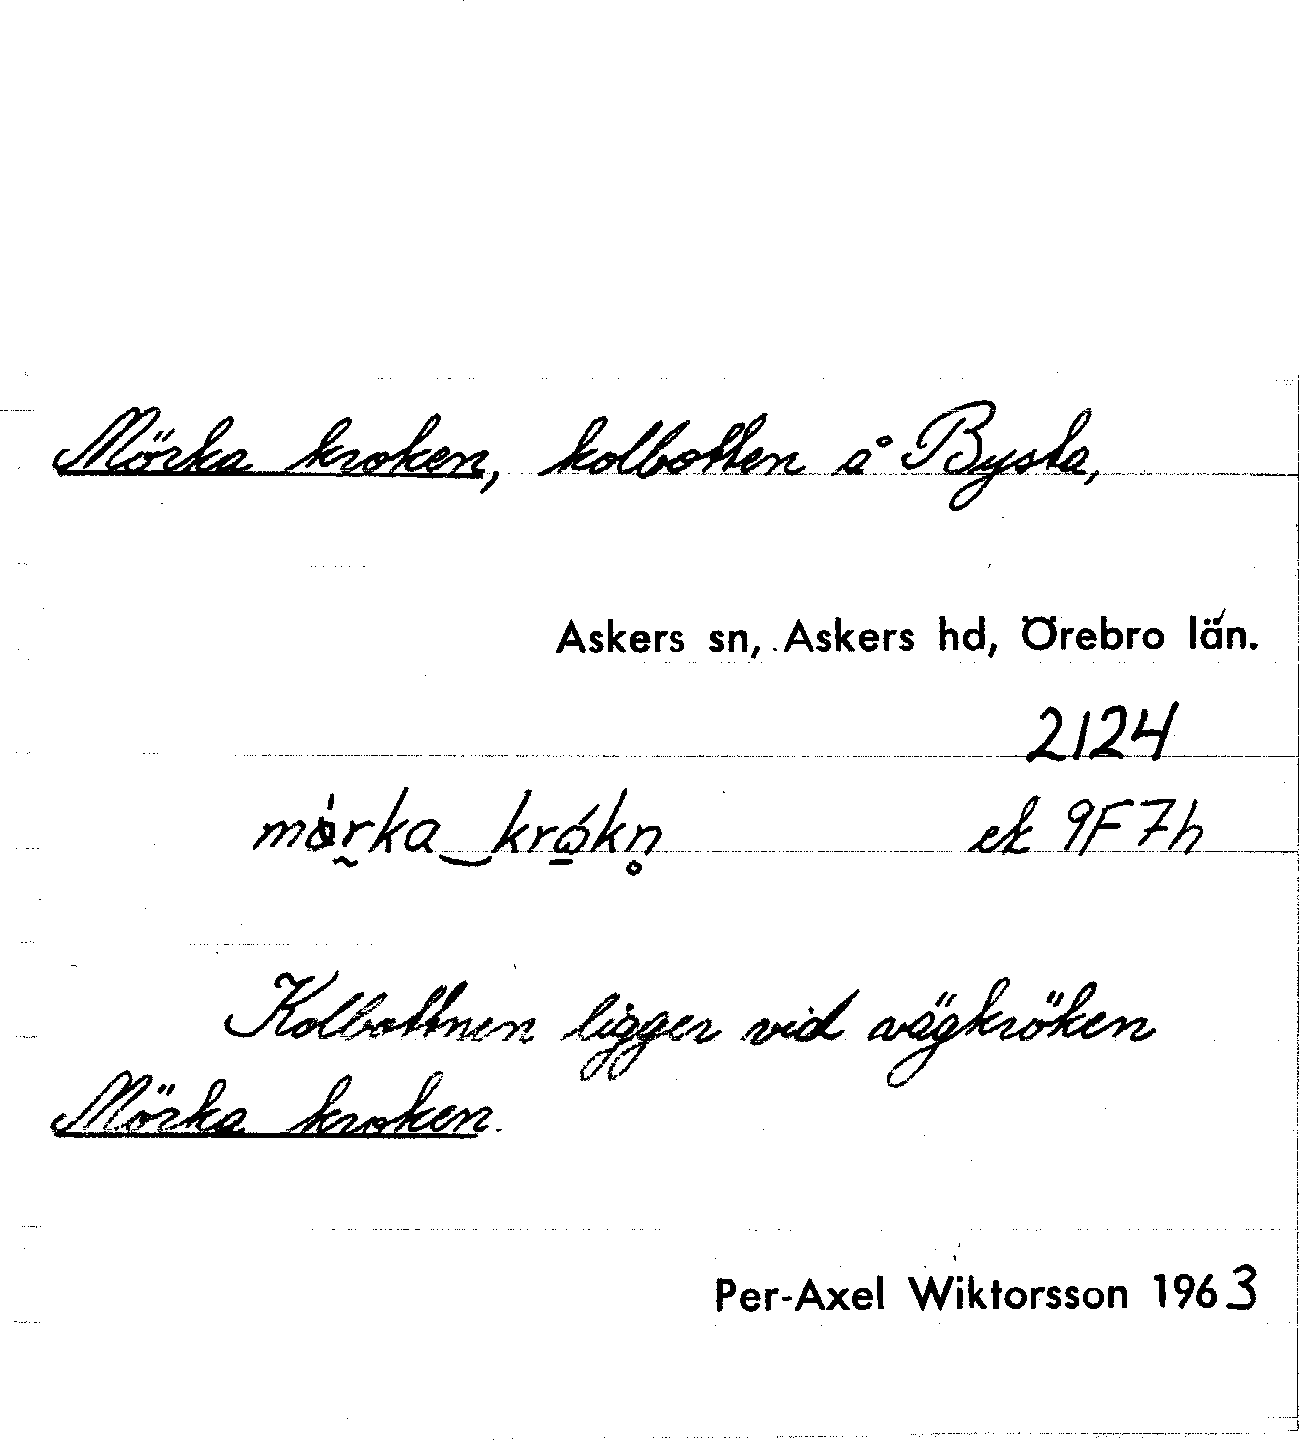 Mörka kroken, kolbotten å Bysta,
Askers sn, Askers hd, Örebro län.
2124
mörka_krókn̥ ek 9F7h
Kolbottnen ligger vid vägkröken
Mörka kroken.
Per-Axel Wiktorsson 1963